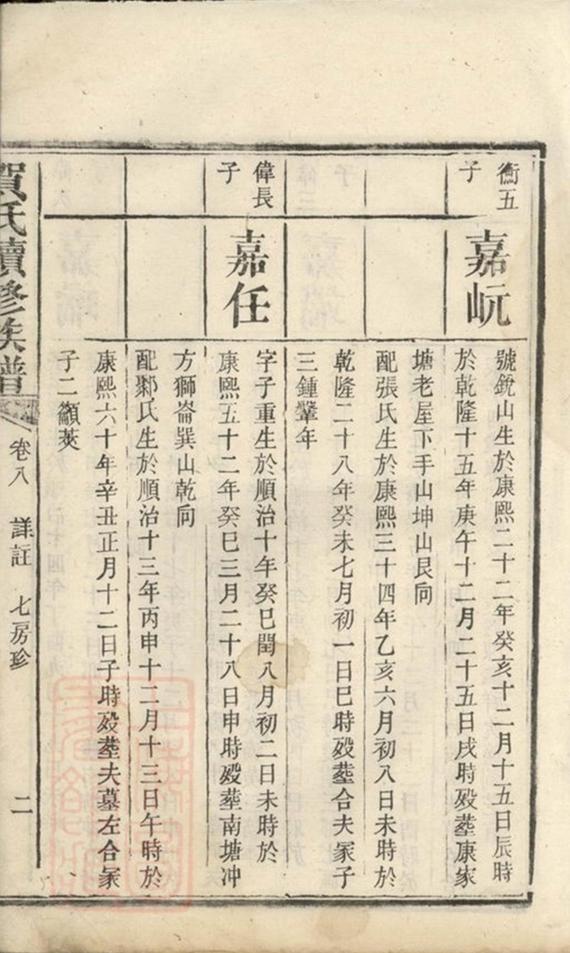 衡五
子
嘉岏
號銳山生於康熙二十二年癸亥十二月十五日辰時
於乾隆十五年庚午十二月二十五日戌時歿塟康家
塘老屋下手山坤山艮向
配張氏生於康熙三十四年乙亥六月初八日未時於
乾隆二十八年癸未七月初一日巳時歿塟合夫冢子
三鍾鞏年
偉長
子
嘉任
字子重生於順治十年癸巳閏八月初二日未時於
康熙五十二年癸巳三月二十八日申時歿塟南塘冲
方獅崙巽山乾向
配鄴氏生於順治十三年丙申十二月十三日午時於
康熙六十年辛丑正月十二日子時歿塟夫墓左合冢
子二籲莢
賀氏續修族譜
卷八 詳註 七房珍 二